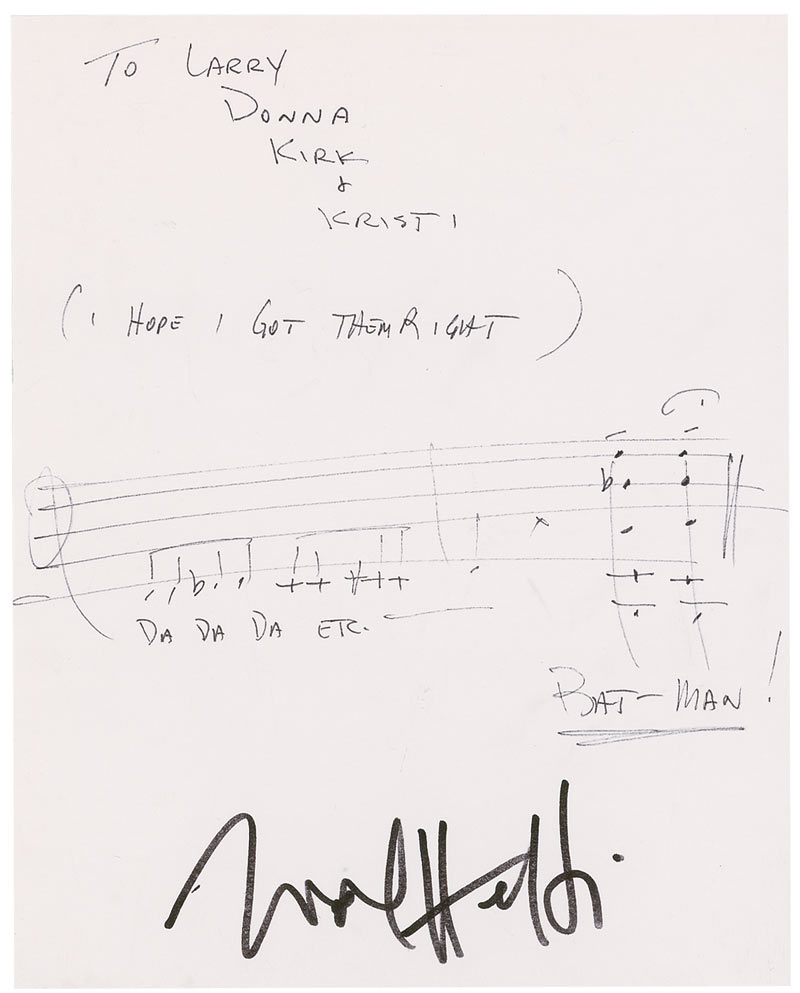 TO LARRY
DONNA
KIRK
&
KRISTI
(I HOPE I GOT THEM RIGHT)
DA DA DA ETC.
BAT-MAN!
Neal Hefti